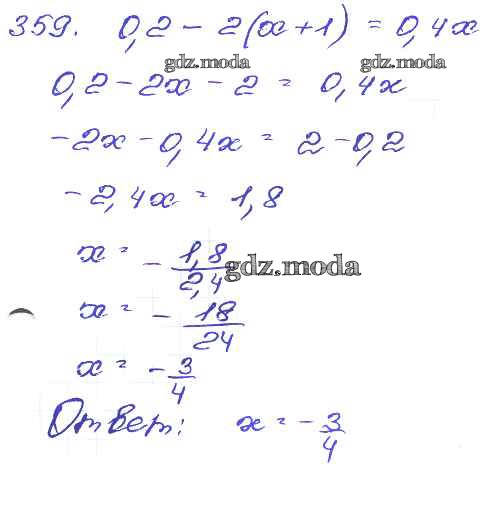 359. 0,2 - 2(x+1) = 0,4x
gdz.moda gdz.moda
0,2 - 2x - 2 = 0,4x
-2x - 0,4x = 2 - 0,2
-2,4x = 1,8
x = - 1,8/2,4
gdz.moda
x = - 18/24
x = - 3/4
Ответ: x = - 3/4